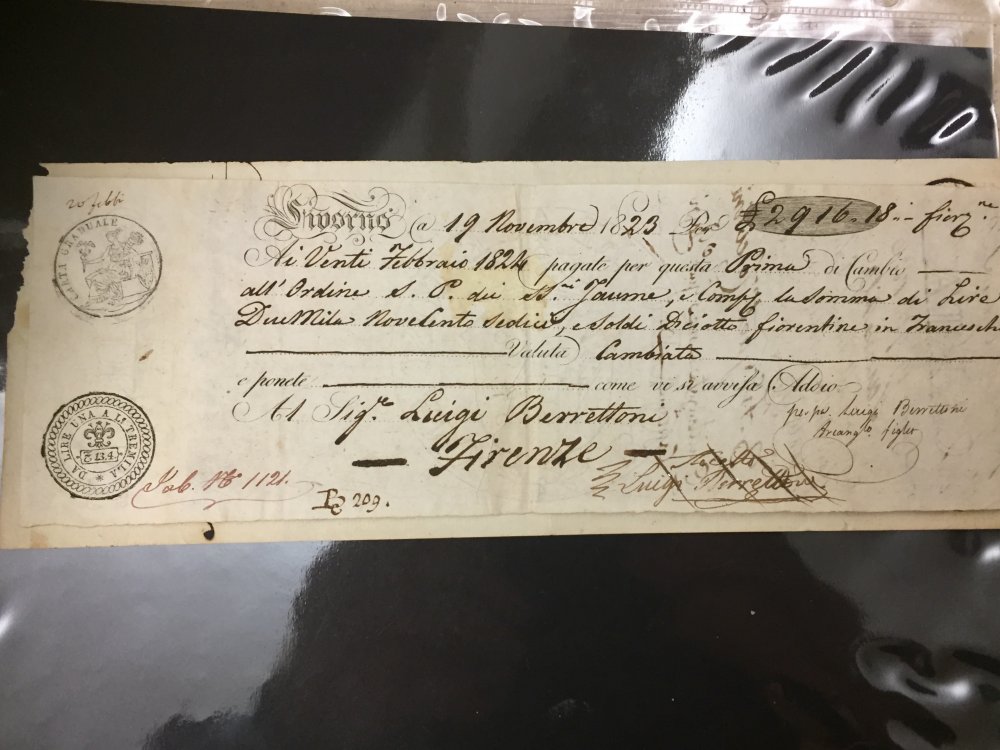 20 febb
CARTA GRADUALE
Livorno a 19 Novembre 1823 Per £ 2916.18.- fior.ne
Ai Venti Febbraio 1824 pagate per questa Prima di Cambio
all'Ordine S. P. dei SS.ri Jaume, e Comp. la Somma di Lire
DueMila NoveCento Sedici, e Soldi Diciotto fiorentine in Francesch
Valuta Cambiata
e ponete come vi si avvisa Addio
Al Sig.re Luigi Berrettoni
Firenze
pr. pr. Luigi Berrettoni
figlio
Luigi Berrettoni
DA LIRE UNA A LI TREMILA
C. 13.4
No 1121.
209.